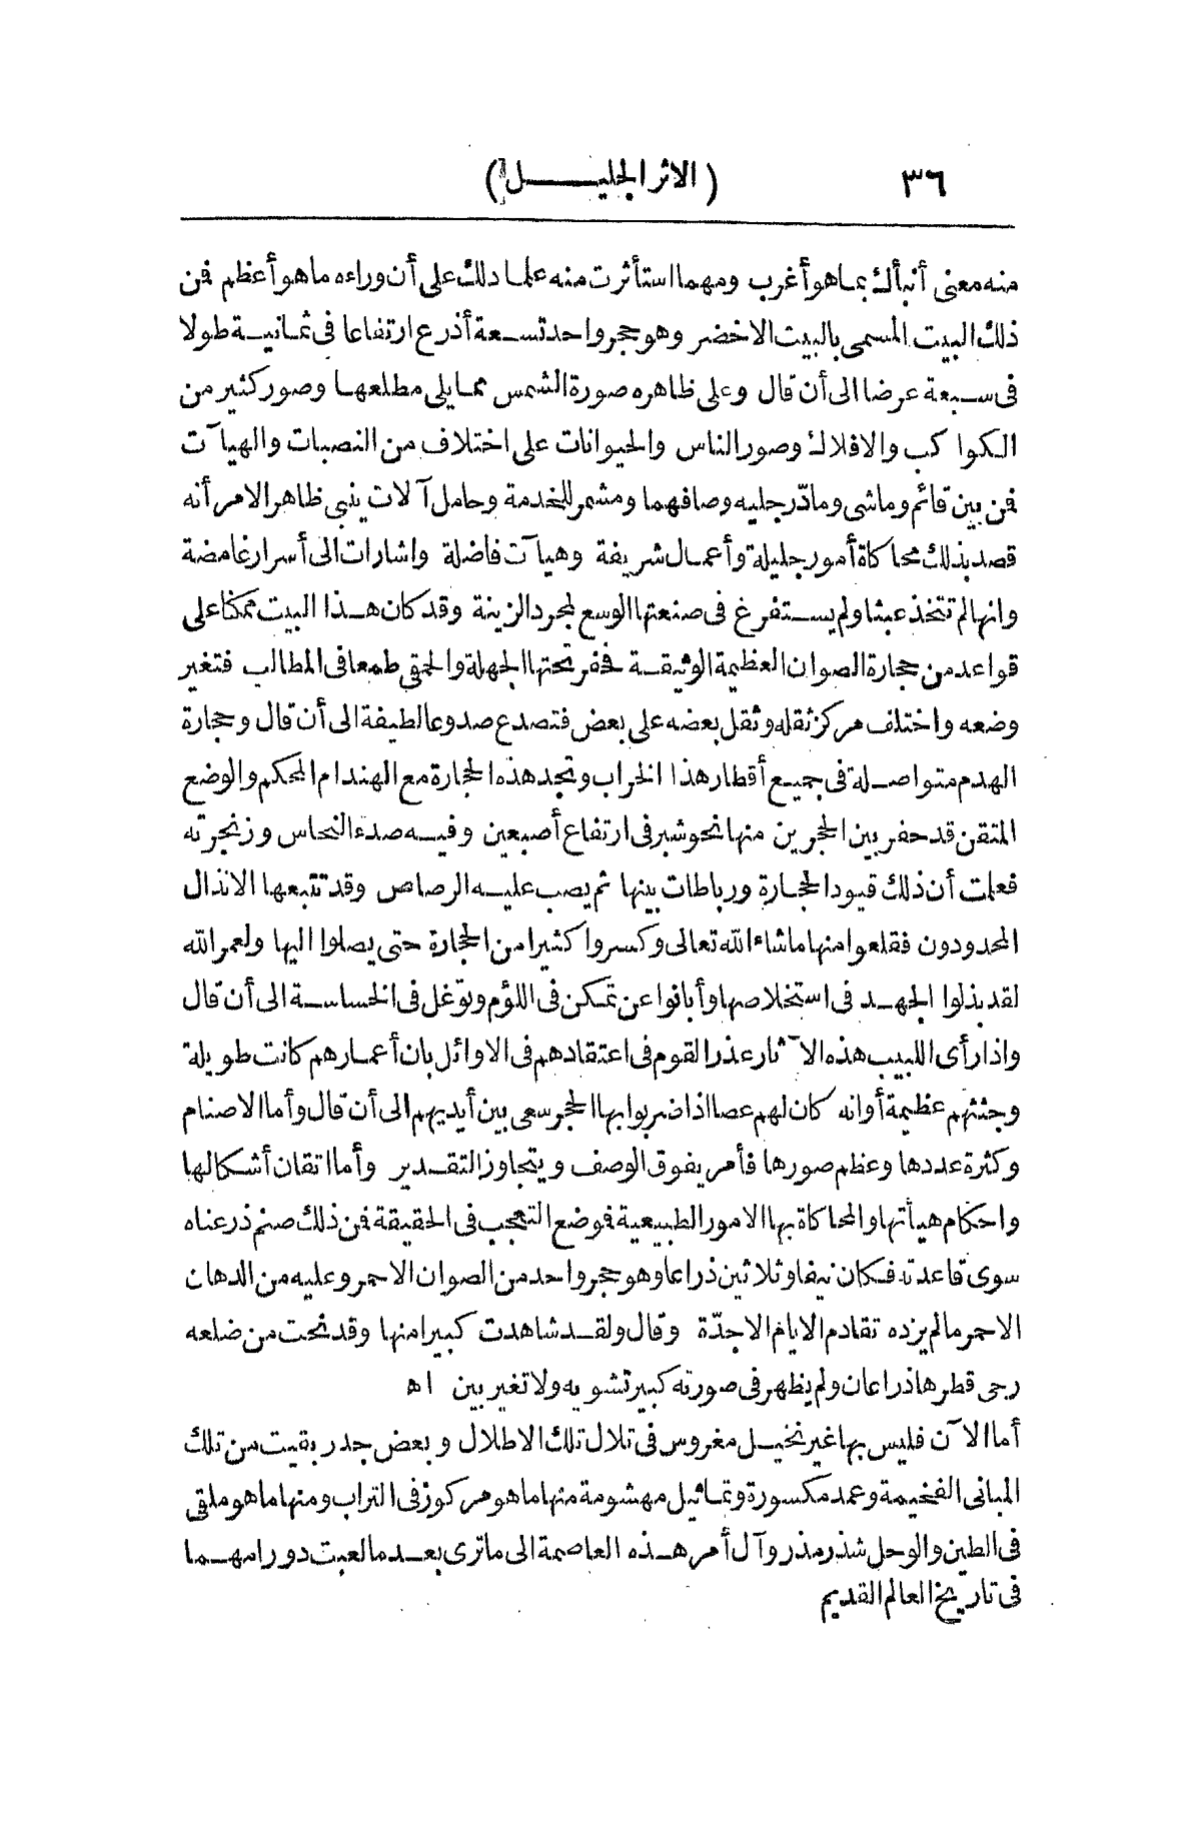 ٣٦ (الاثر الجليل)
منه معنى أنبأك بما هو أغرب ومهما استأثرت منه علما دلك على أن وراءه ما هو أعظم فمن
ذلك البيت المسمى بالبيت الاخضر وهو حجر واحد تسعة أذرع ارتفاعا فى ثمانية طولا
فى سبعة عرضا الى أن قال وعلى ظاهره صورة الشمس مما يلى مطلعها وصور كثير من
الكواكب والافلاك وصور الناس والحيوانات على اختلاف من النصبات والهيآت
فمن بين قائم وماشى وماد رجليه وصافهما ومشمر للخدمة وحامل آلات ينبى ظاهر الامر أنه
قصد بذلك محاكاة أمور جليلة وأعمال شريفة وهيآت فاضلة واشارات الى أسرار غامضة
وانها لم تتخذ عبثا ولم يستفرغ فى صنعتها الوسع لمجرد الزينة وقد كان هذا البيت ممكنا على
قواعد من حجارة الصوان العظيمة الوثيقة فحفر تحتها الجهلة والحمقى طمعا فى المطالب فتغير
وضعه واختلف مركز ثقله وثقل بعضه على بعض فتصدع صدوعا لطيفة الى أن قال وحجارة
الهدم متواصلة فى جميع أقطار هذا الخراب وتجد هذه الحجارة مع الهندام المحكم والوضع
المتقن قد حفر بين الحجرين منها نحو شبر فى ارتفاع أصبعين وفيه صدء النحاس وزنجرته
فعلمت أن ذلك قيود الحجارة ورباطات بينها ثم يصب عليه الرصاص وقد تتبعها الانذال
المحدودون فقلعوا منها ماشاء الله تعالى وكسروا كثيرا من الحجارة حتى يصلوا اليها ولعمر الله
لقد بذلوا الجهد فى استخلاصها وأبانوا عن تمكن فى اللؤم وتوغل فى الخساسة الى أن قال
واذا رأى اللبيب هذه الآثار عذر القوم فى اعتقادهم فى الاوائل بان أعمارهم كانت طويلة
وجثثهم عظيمة أوانه كان لهم عصا اذا ضربوا بها الحجر سعى بين أيديهم الى أن قال وأما الاصنام
وكثرة عددها وعظم صورها فأمر يفوق الوصف ويتجاوز التقدير وأما اتقان أشكالها
واحكام هيأتها والمحاكاة بها الامور الطبيعية فوضع التعجب فى الحقيقة فمن ذلك صنم ذرعناه
سوى قاعدته فكان نيفا وثلاثين ذراعا وهو حجر واحد من الصوان الاحمر وعليه من الدهان
الاحمر مالم يزده تقادم الايام الاجدّة وقال ولقد شاهدت كبيرا منها وقد نحت من ضلعه
رحى قطرها ذراعان ولم يظهر فى صورته كبير تشويه ولا تغير بين اه
أما الآن فليس بها غير نخيل مغروس فى تلال تلك الاطلال وبعض جدر بقيت من تلك
المبانى الفخيمة وعمد مكسورة وتماثيل مهشومة منها ما هو مركوز فى التراب ومنها ما هو ملقى
فى الطين والوحل شذر مذر وآل أمر هذه العاصمة الى ماترى بعد ما لعبت دورا مهما
فى تاريخ العالم القديم